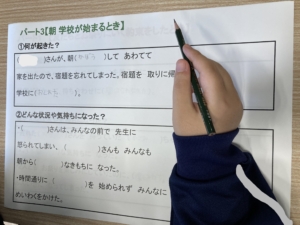 パート3【朝 学校が始まるとき】
①何が起きた?
( )さんが、朝( )して あわてて
家を出たので、宿題を忘れてしまった。宿題を 取りに帰
学校に(
②どんな状況や気持ちになった?
・( )さんは、みんなの前で 先生に
怒られてしまい、( )さんも みんなも
朝から( )なきもちに なった。
・時間通りに( )を 始められず みんなに
めいわくをかけた。